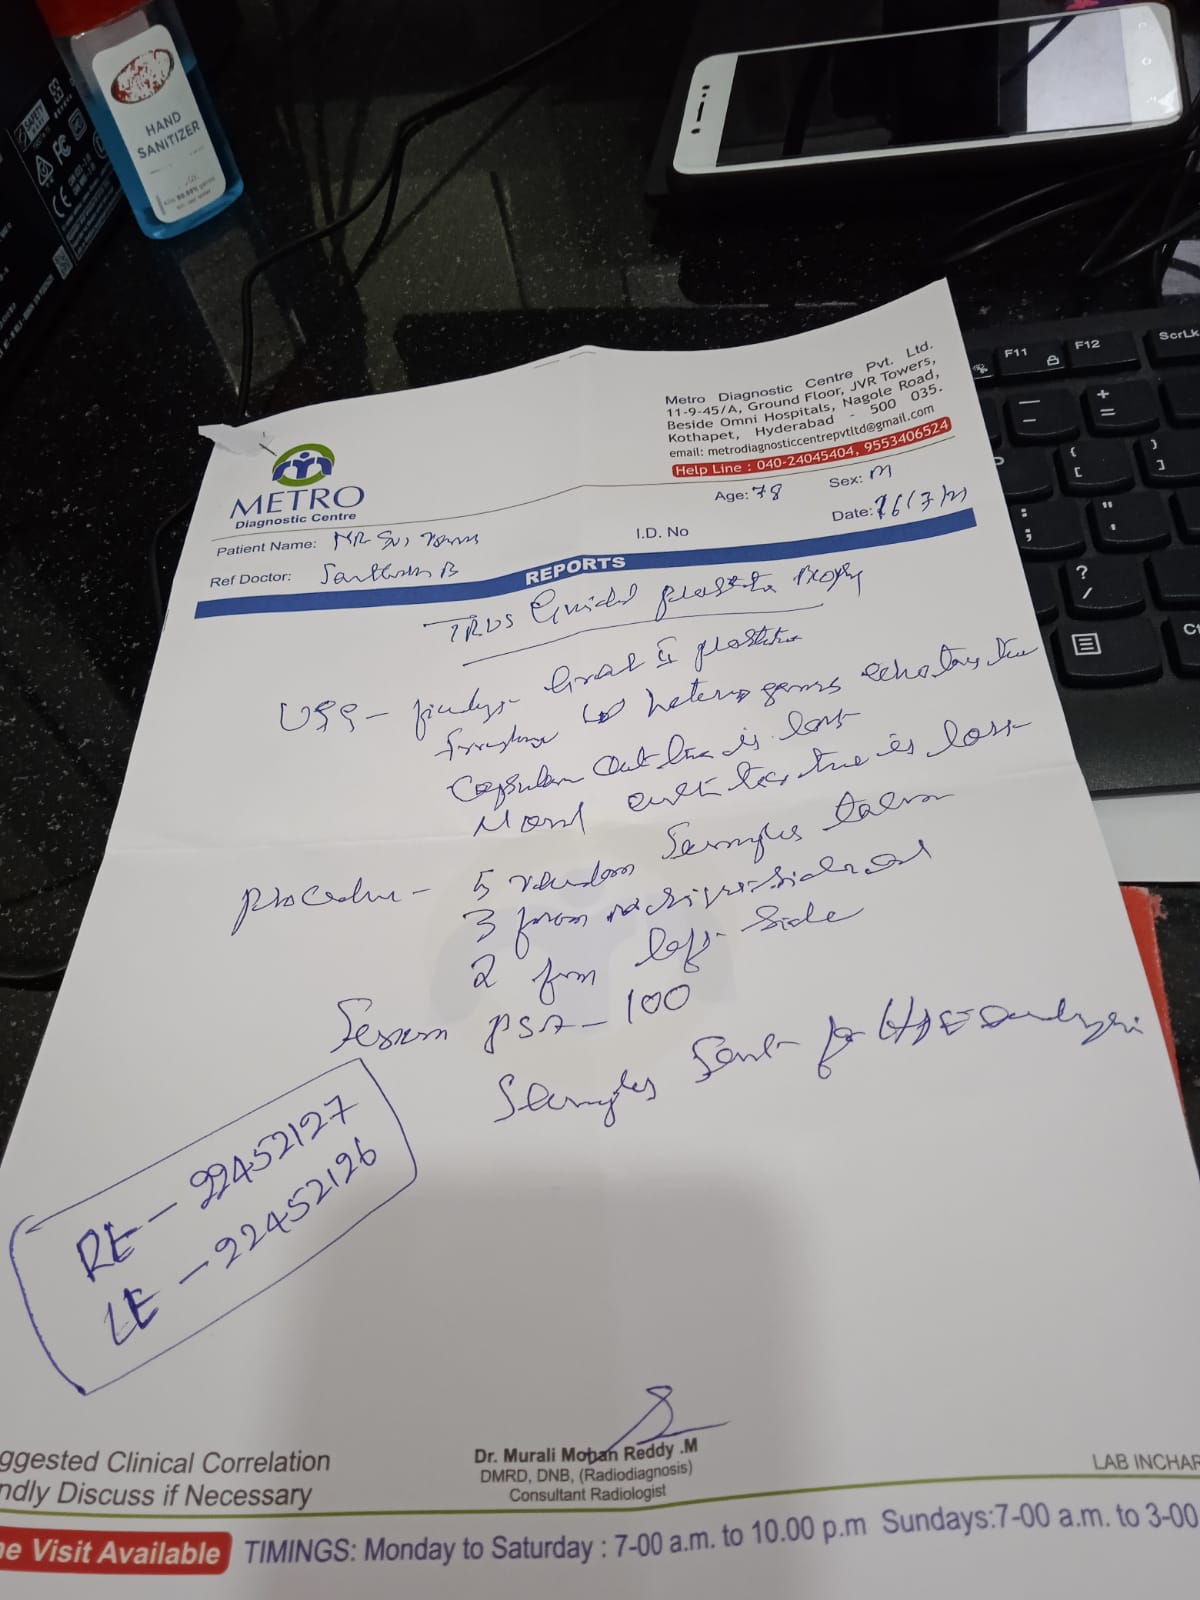 HAND
SANITIZER
SAFETY
FC
CE
F11
F12
ScrLk
Metro Diagnostic Centre Pvt. Ltd.
11-9-45/A, Ground Floor, JVR Towers,
Beside Omni Hospitals, Nagole Road,
Kothapet, Hyderabad - 500 035.
email: metrodiagnosticcentrepvtltd@gmail.com
Help Line : 040-24045404, 9553406524
METRO
Diagnostic Centre
Age: 78 Sex: M
Patient Name: Mr I.D. No Date:
Ref Doctor:
REPORTS
TRUS Guided prostate Biopsy
USG - findings - Grade II prostate
heterogenous echotexture
Capsular outline is lost
is lost
Procedure - 5 random Samples taken
3 from right side and
2 from left side
Serum PSA - 100
Samples Sent for HPE
RE - 22452127
LE - 22452126
Dr. Murali Mohan Reddy .M
DMRD, DNB, (Radiodiagnosis)
Consultant Radiologist
ggested Clinical Correlation
ndly Discuss if Necessary
LAB INCHAR
e Visit Available
TIMINGS: Monday to Saturday : 7-00 a.m. to 10.00 p.m Sundays:7-00 a.m. to 3-00